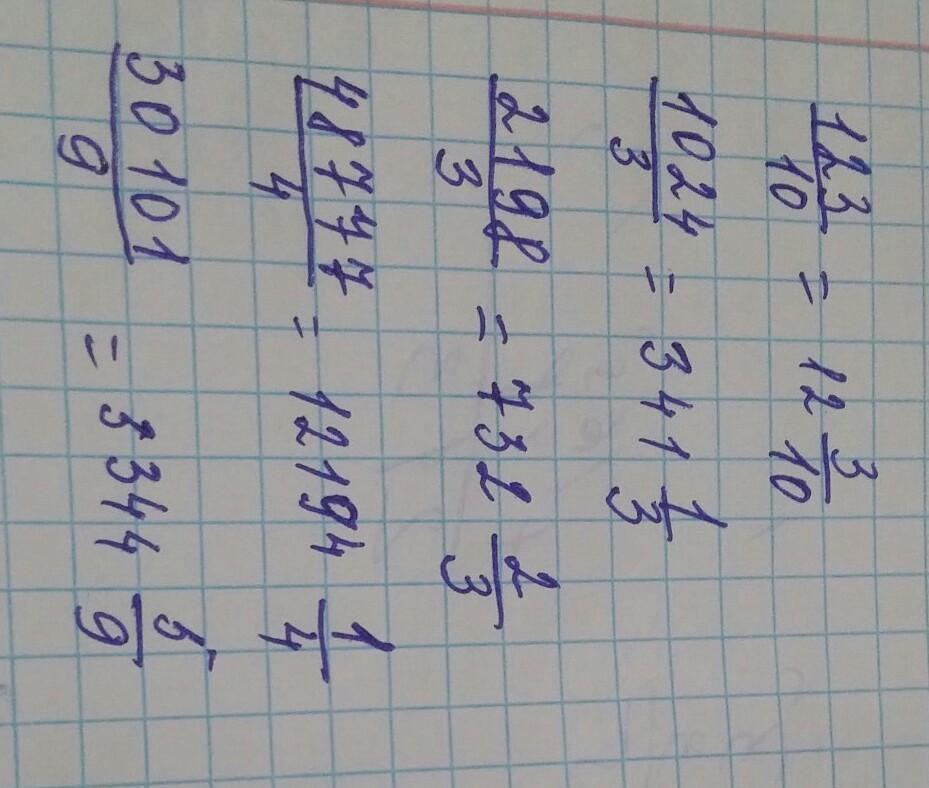 123/10 = 12 3/10
1024/3 = 341 1/3
2198/3 = 732 2/3
48777/4 = 12194 1/4
30101/9 = 3344 5/9